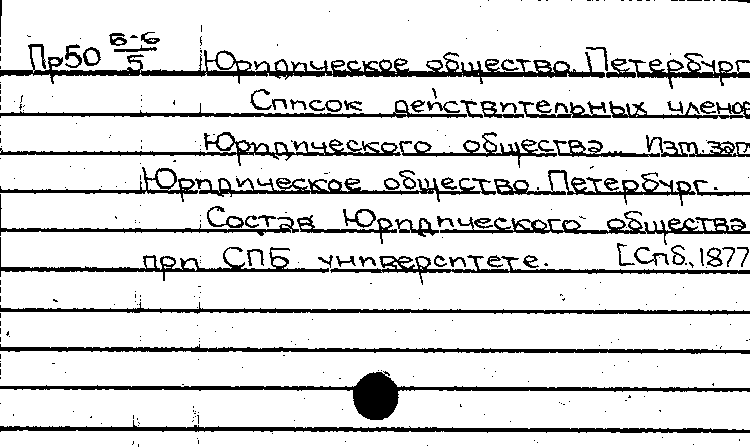 Пр50 Б-6/5 Юридическое общество. Петербург
Список действительных членов
Юридического общества. Изм. заг.
Юридическое общество. Петербург.
Состав Юридического общества
при СПБ университете. [Спб, 1877